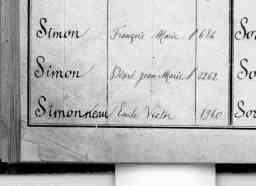 Simon François Marie 1686 So
Simon Désiré Jean Marie 2262 So
Simonneau Emile Victor 1960 Sou